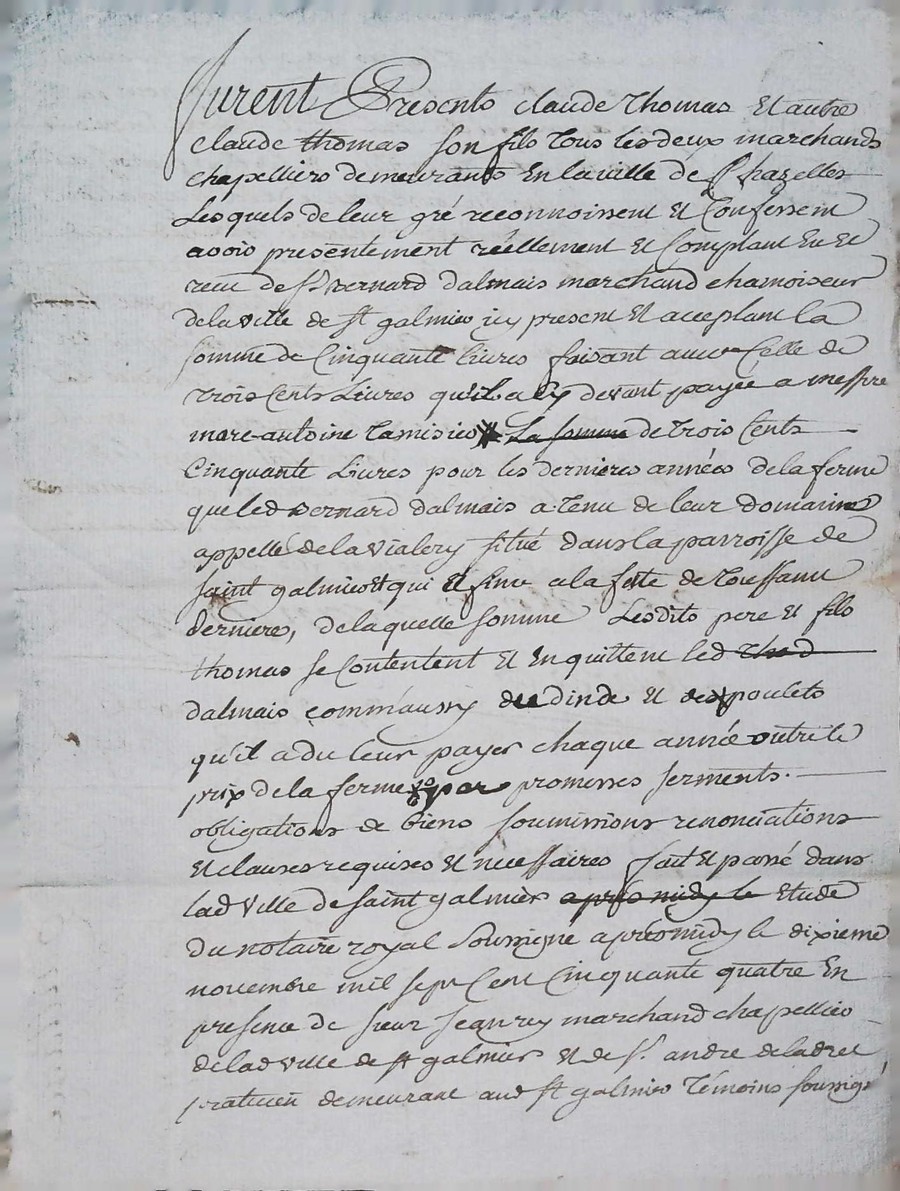 furent Presents claude Thomas Et autre
claude thomas son fils Tous les deux marchands
chapelliers demeurants En la ville de Chazelles
Lesquels de leur gré reconnoissent Et Confessent
avoir presentement réellement Et Comptant Eu Et
receu de sr. Bernard dalmais marchand chamoiseur
de la ville de st galmier icy present Et acceptant la
somme de Cinquante livres faisant avec Celle de
trois Cents Livres qu'il a Cy devant payée a messire
marc-antoine Tamisier La somme de Trois Cents
Cinquante Livres pour les dernieres années de la ferme
que led Bernard dalmais a Tenu de leur domaine
appellé de la Vialery situé dans la parroisse de
saint galmier Et qui Est finie a la fete de Toussaint
derniere, de laquelle somme Lesdits pere Et fils
thomas se Contentent Et En quittent led
dalmais comm'aussy du dinde Et des poulets
qu'il a du leur payer chaque année outre le
prix de la ferme par promesses serments.
obligations de biens soumissions renonciations
Et clauses requises Et necessaires fait Et passé dans
lad Ville de saint galmier apres midy le Etude
du notaire royal soussigné apres midy le dixieme
novembre mil sept Cent Cinquante quatre En
presence de sieur marchand chapellier
de lad Ville de st galmier Et de sr. andre deladret
praticien demeurant aud st galmier Témoins soussigné